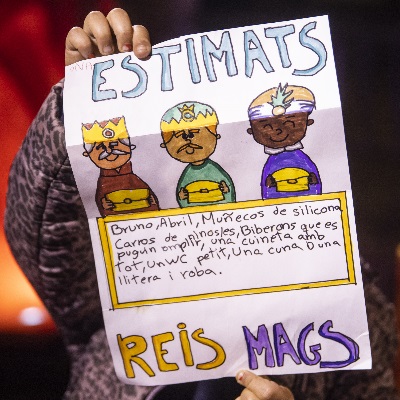 ESTIMATS
Bruno, Abril, Muñecos de silicona
Carros de ninos/es, Biberons que es
pugun omplir, una cuineta amb
tot, Un WC petit, Una cuna Duna
llitera i roba.
REIS MAGS